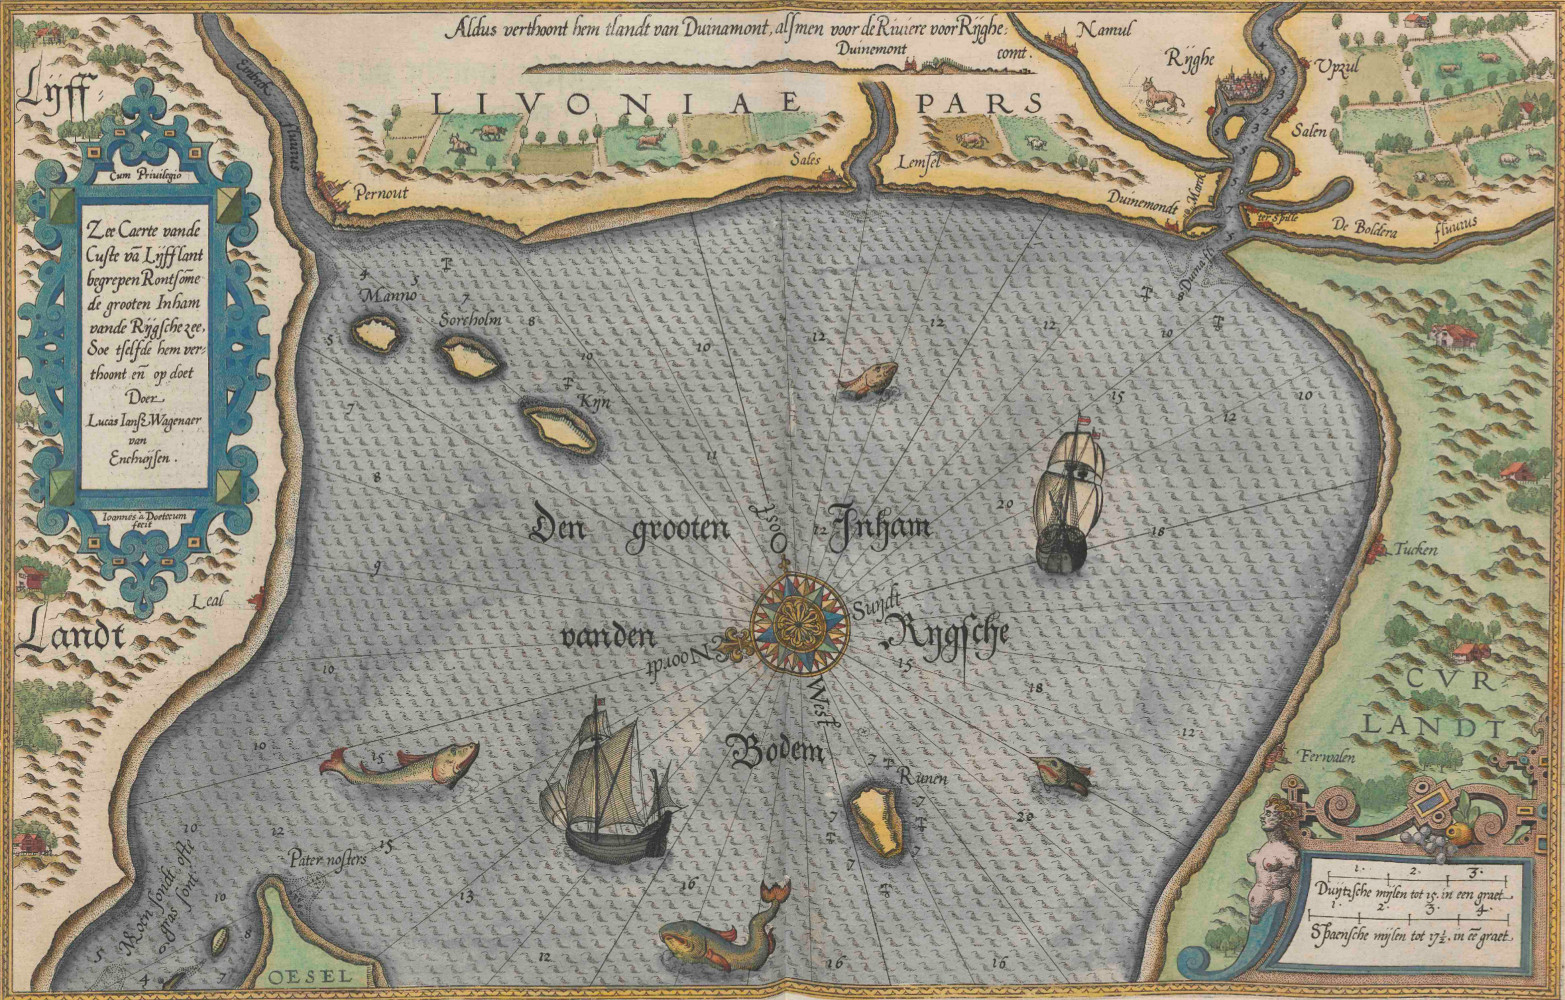 Aldus verthoont hem tlandt van Duinamont, alsmen voor de Riviere voor Rÿghe comt.
Duinemont
Namul
Rÿghe
Upzul
Lÿff-
Embeck
fluvius
LIVONIAE PARS
Salen
Cum Privilegio
Pernout
Sales
Lemsel
Duinemondt
ter Spille
De Boldera fluuius
Zee Caerte vande
Custe vā Lÿfflant
begrepen Rontsōme
de grooten Inham
vande Rÿgsche zee,
Soe tselfde hem ver:
thoont eñ op doet
Doer
Lucas Ianß Wagenaer
van
Enchuÿsen.
Ioannes a Doetecum
fecit
4
5
Manno
7
Sorcholm
8
5
10
10
12
12
12
10
8
Kÿn
7
15
12
10
11
8
20
18
Den grooten Inham
12
Oost
9
Tucken
Leal
Landt
vanden Rÿgsche
Suÿdt
Noordt
West
15
10
18
CVR
LANDT
12
10
15
Bodem
Ferwalen
7
Runen
7
7
7
20
10
12
15
Pater nosters
Moen sondt ofte
gras sont
16
13
10
8
5
4
7
12
16
16
OESEL
1. 2. 3.
Duÿtzsche mÿlen tot 15. in een graet
1. 2. 3. 4.
Spaensche mÿlen tot 17½. in eē graet